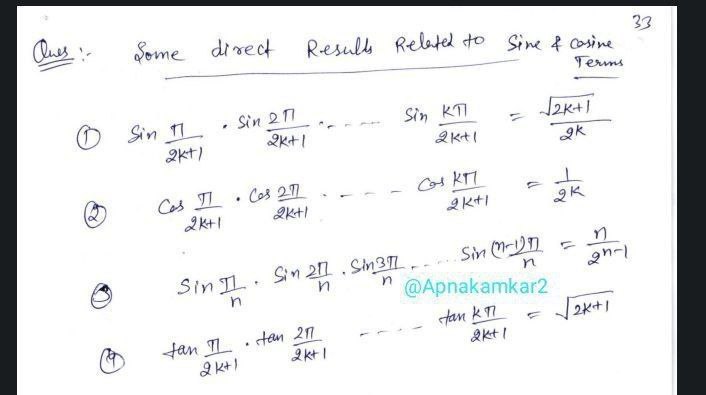 33
Ques :- Some direct Results Related to Sine & cosine Terms
① Sin π/2k+1 · Sin 2π/2k+1 · - - - - Sin kπ/2k+1 = √2k+1/2k
② Cos π/2k+1 · Cos 2π/2k+1 · - - - - Cos kπ/2k+1 = 1/2k
③ Sin π/n · Sin 2π/n · Sin 3π/n . . . . Sin (n-1)π/n = n/2n-1
@Apnakamkar2
④ tan π/2k+1 · tan 2π/2k+1 - - - - tan kπ/2k+1 = √2k+1